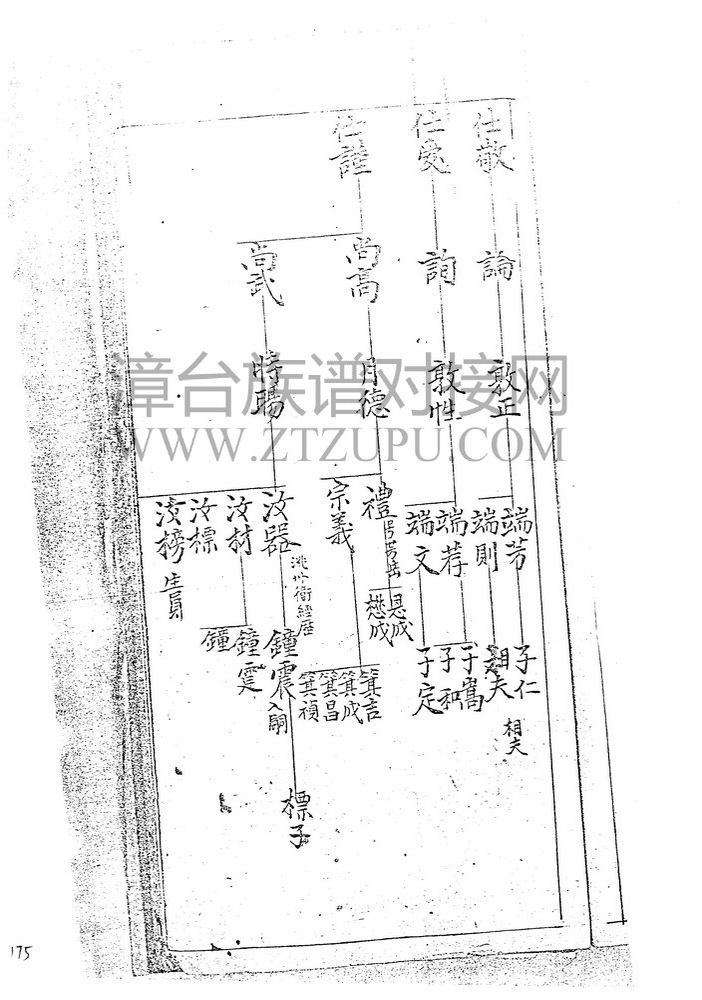 仕敬
仕受
仕謹
論
詢
尚高
尚武
敦正
敦性
月德
時暘
端芳
端則
端荐
端文
禮
宗義
汝器
洮州衛經歷
汝材
汝標
汝榜
生員
子仁
相夫
相夫
子嵩
子和
子定
思成
懋成
箕吉
箕成
箕昌
箕禎
鐘震
入嗣
鐘霆
鐘
標子
漳台族谱对接网
WWW.ZTZUPU.COM
175